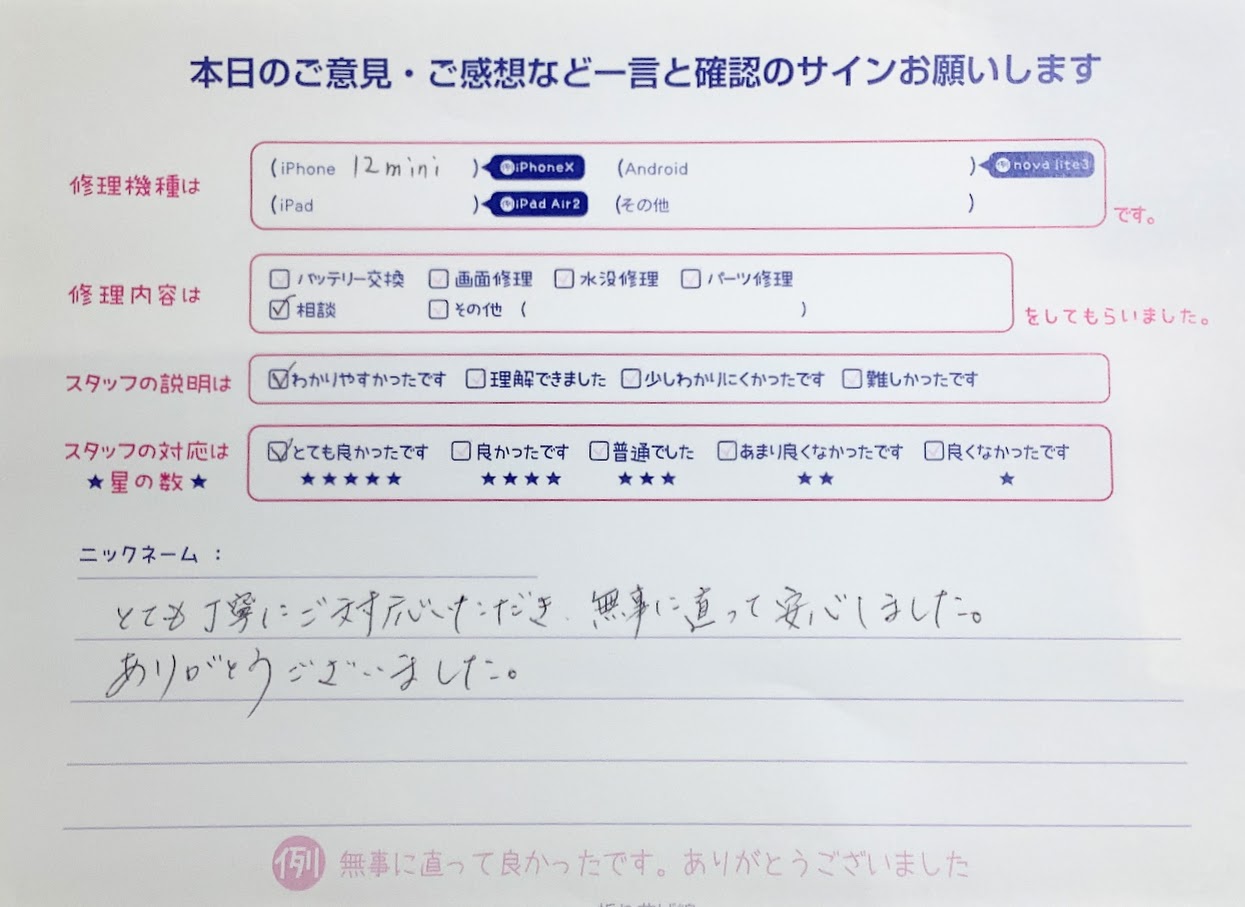 本日のご意見・ご感想など一言と確認のサインお願いします
修理機種は (iPhone 12mini ) iPhoneX (Android ) nova lite3
(iPad ) iPad Air2 (その他 ) です。
修理内容は □バッテリー交換 □画面修理 □水没修理 □パーツ修理
☑相談 □その他 ( ) をしてもらいました。
スタッフの説明は ☑わかりやすかったです □理解できました □少しわかりにくかったです □難しかったです
スタッフの対応は ☑とても良かったです □良かったです □普通でした □あまり良くなかったです □良くなかったです
★星の数★ ★★★★★ ★★★★ ★★★ ★★ ★
ニックネーム：
とても丁寧にご対応いただき、無事に直って安心しました。
ありがとうございました。
例 無事に直って良かったです。ありがとうございました